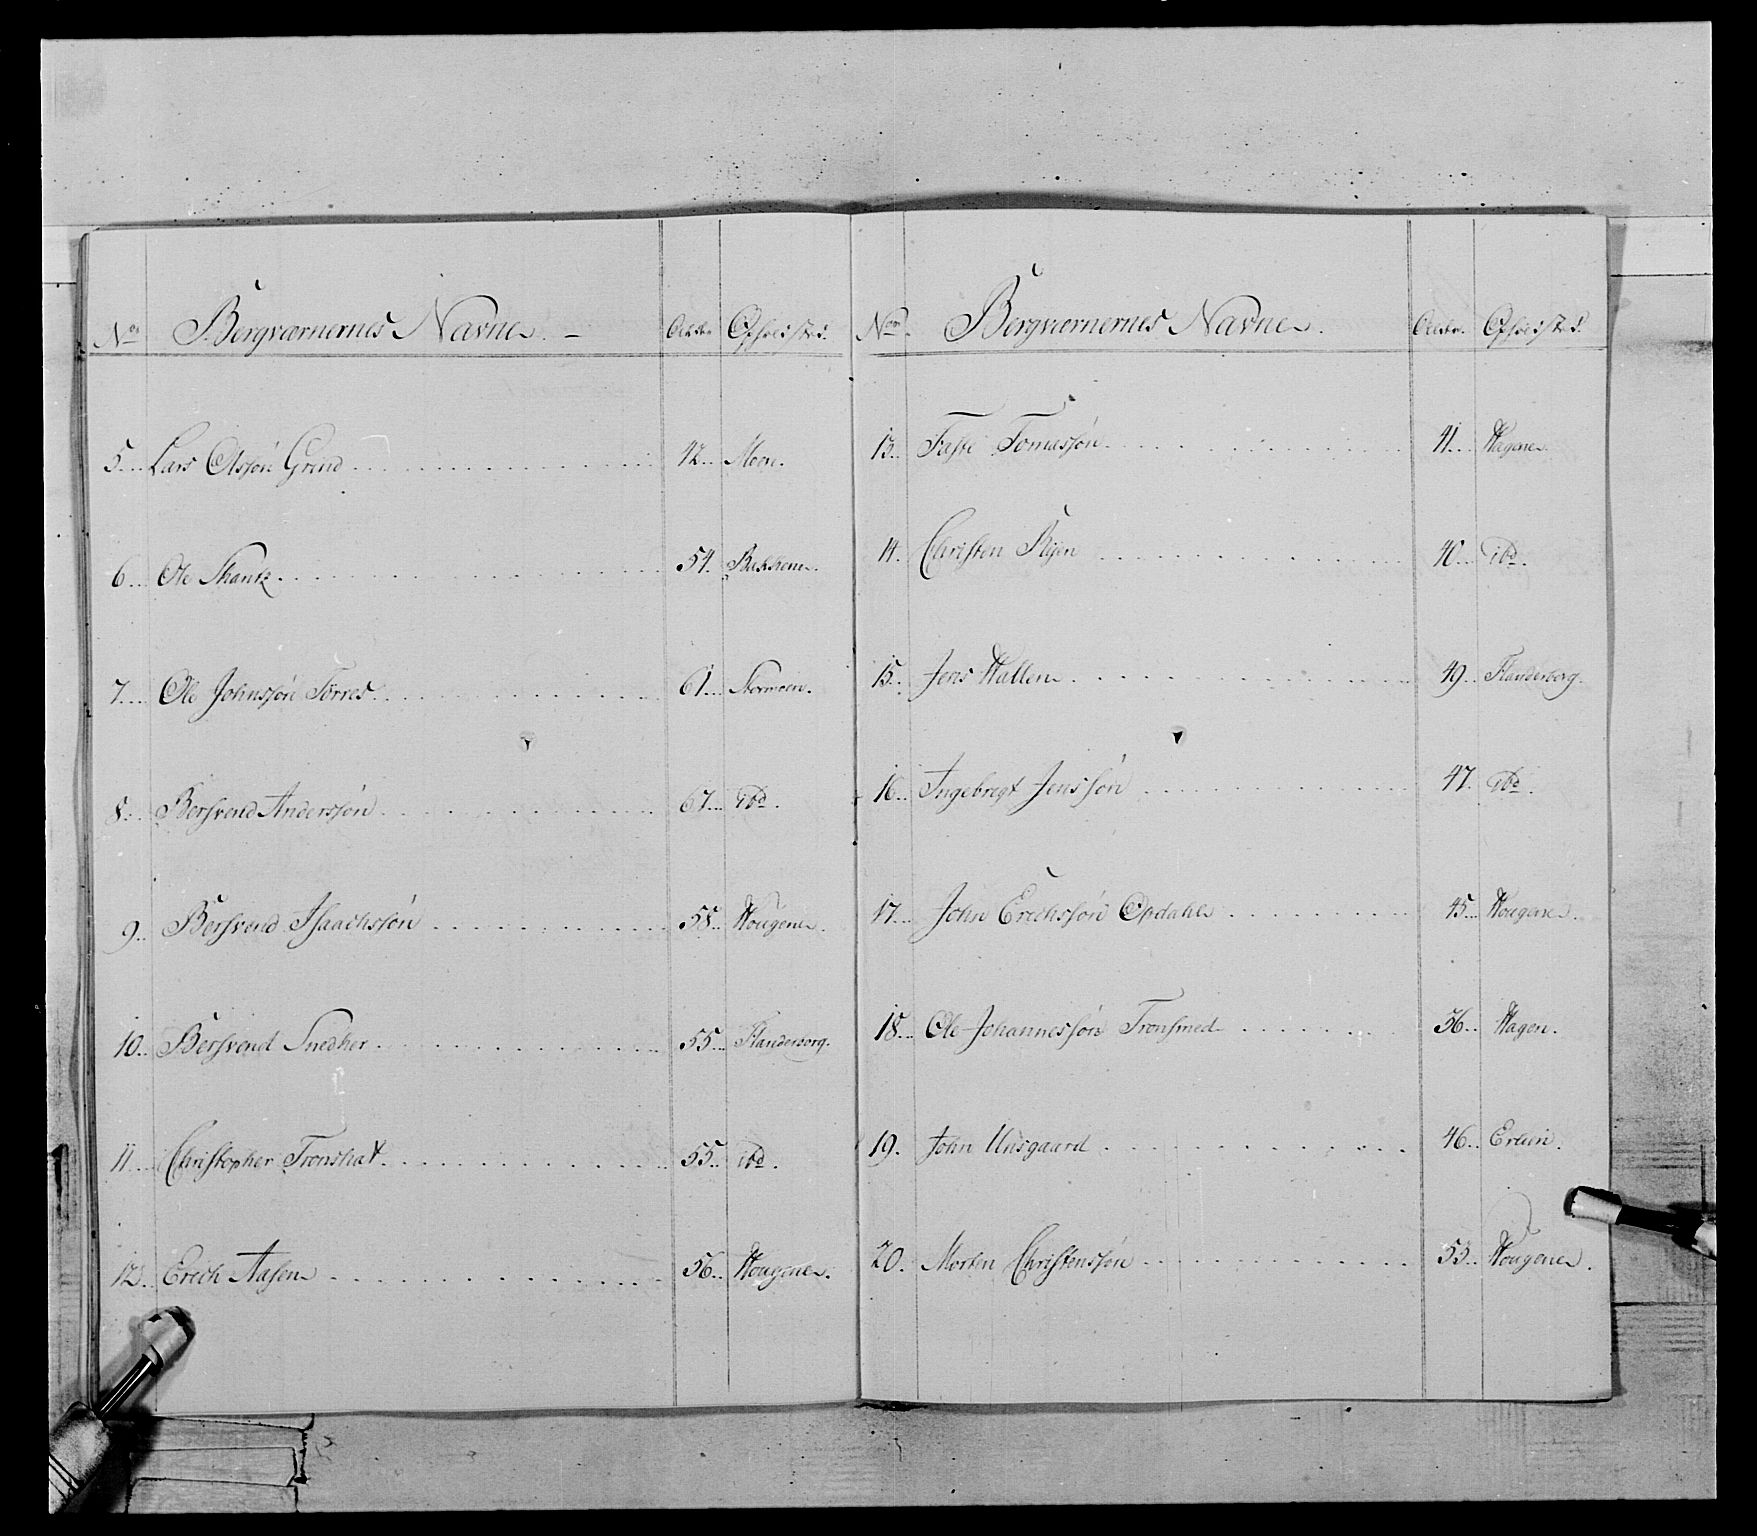 Nos Bergværnernes Navne. – Alder. Opholdsted.
5. Lars Olssøn Grind 42. Moen.
6. Ole Skantz 54. Bakkene.
7. Ole Johnssøn Torres 61. Stormoen.
8. Bersvend Anderssøn 67. ibd.
9. Bersvend Isaachssøn 58. Hougene.
10. Bersvend Snedker 55. Flanderborg.
11. Christopher Tronshat 55. ibd.
12. Erich Aasen 56. Hougene.
Nos Bergværnernes Navne. Alder. Opholdsted.
13. Faste Tomassøn 41. Hagene.
14. Christen Rijen 40. ibd.
15. Jens Hallen 49. Flanderborg.
16. Ingebregt Jenssøn 47. ibd.
17. John Erichssøn Opdahl 45. Hougene.
18. Ole Johannessøn Tronsmed 56. Hagen.
19. John Uusgaard 46. Erlien.
20. Morten Christenssøn 55. Hougene.